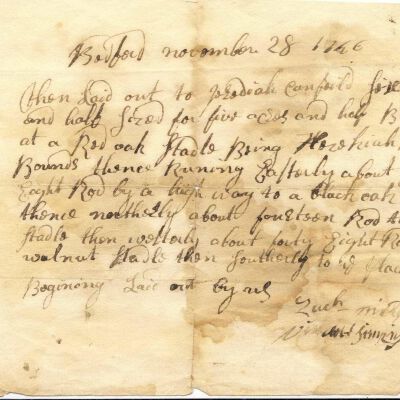 Bedford november 28 1746
then Laid out to
and half Acred for five acres and half
at a Red oak Stadle Being Jeremiah
Bounds thence Runing Easterly about
Eight Rod by a high way to a black oak
thence northerly about fourteen Rod
Stadle then westerly about forty Eight
walnut Stadle then Southerly to
Begining Laid out by us
Zach